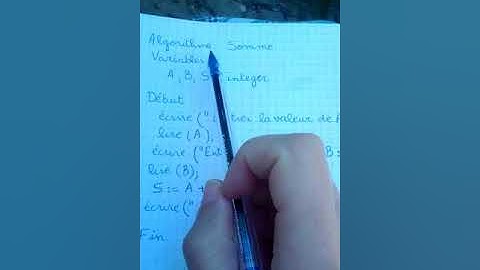 Algorithme Somme
Variables
A, B, S integer
Début
écrire (" la valeur de
lire (A),
écrire ("Ent B :
lire (B);
S := A +
écrire ("
Fin